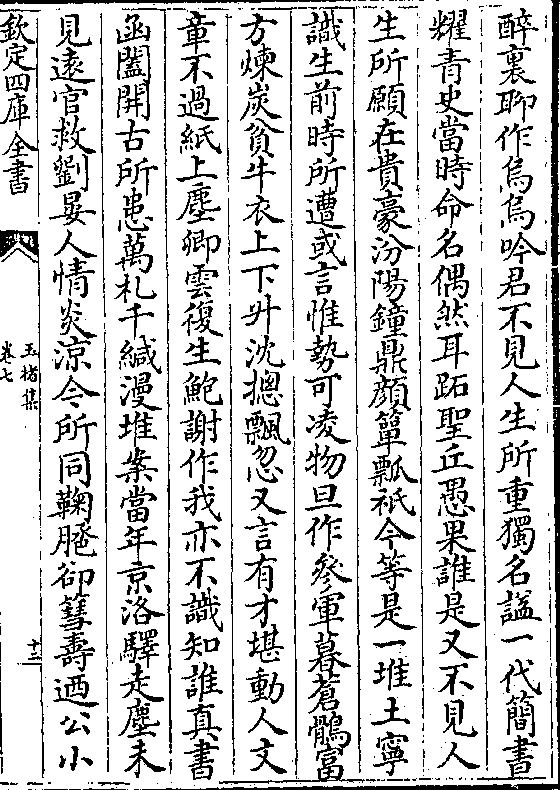 醉裏聊作烏烏吟君不見人生所重獨名謚一代簡書
耀青史當時命名偶然耳跖聖丘愚果誰是又不見人
生所願在貴豪汾陽鐘鼎顔簞瓢祇今等是一堆土寧
識生前時所遭或言惟勢可凌物旦作參軍暮蒼鶻富
方煉炭貧牛衣上下升沈摠飄忽又言有才堪動人文
章不過紙上塵卿雲復生鮑謝作我亦不識知誰真書
函闔開古所患萬札千緘漫堆案當年京洛驛走塵未
見遠官救劉晏人情炎涼今所同鞠𦜕卻彗壽迺公小
欽定四庫全書
玉楮集
卷七
十三